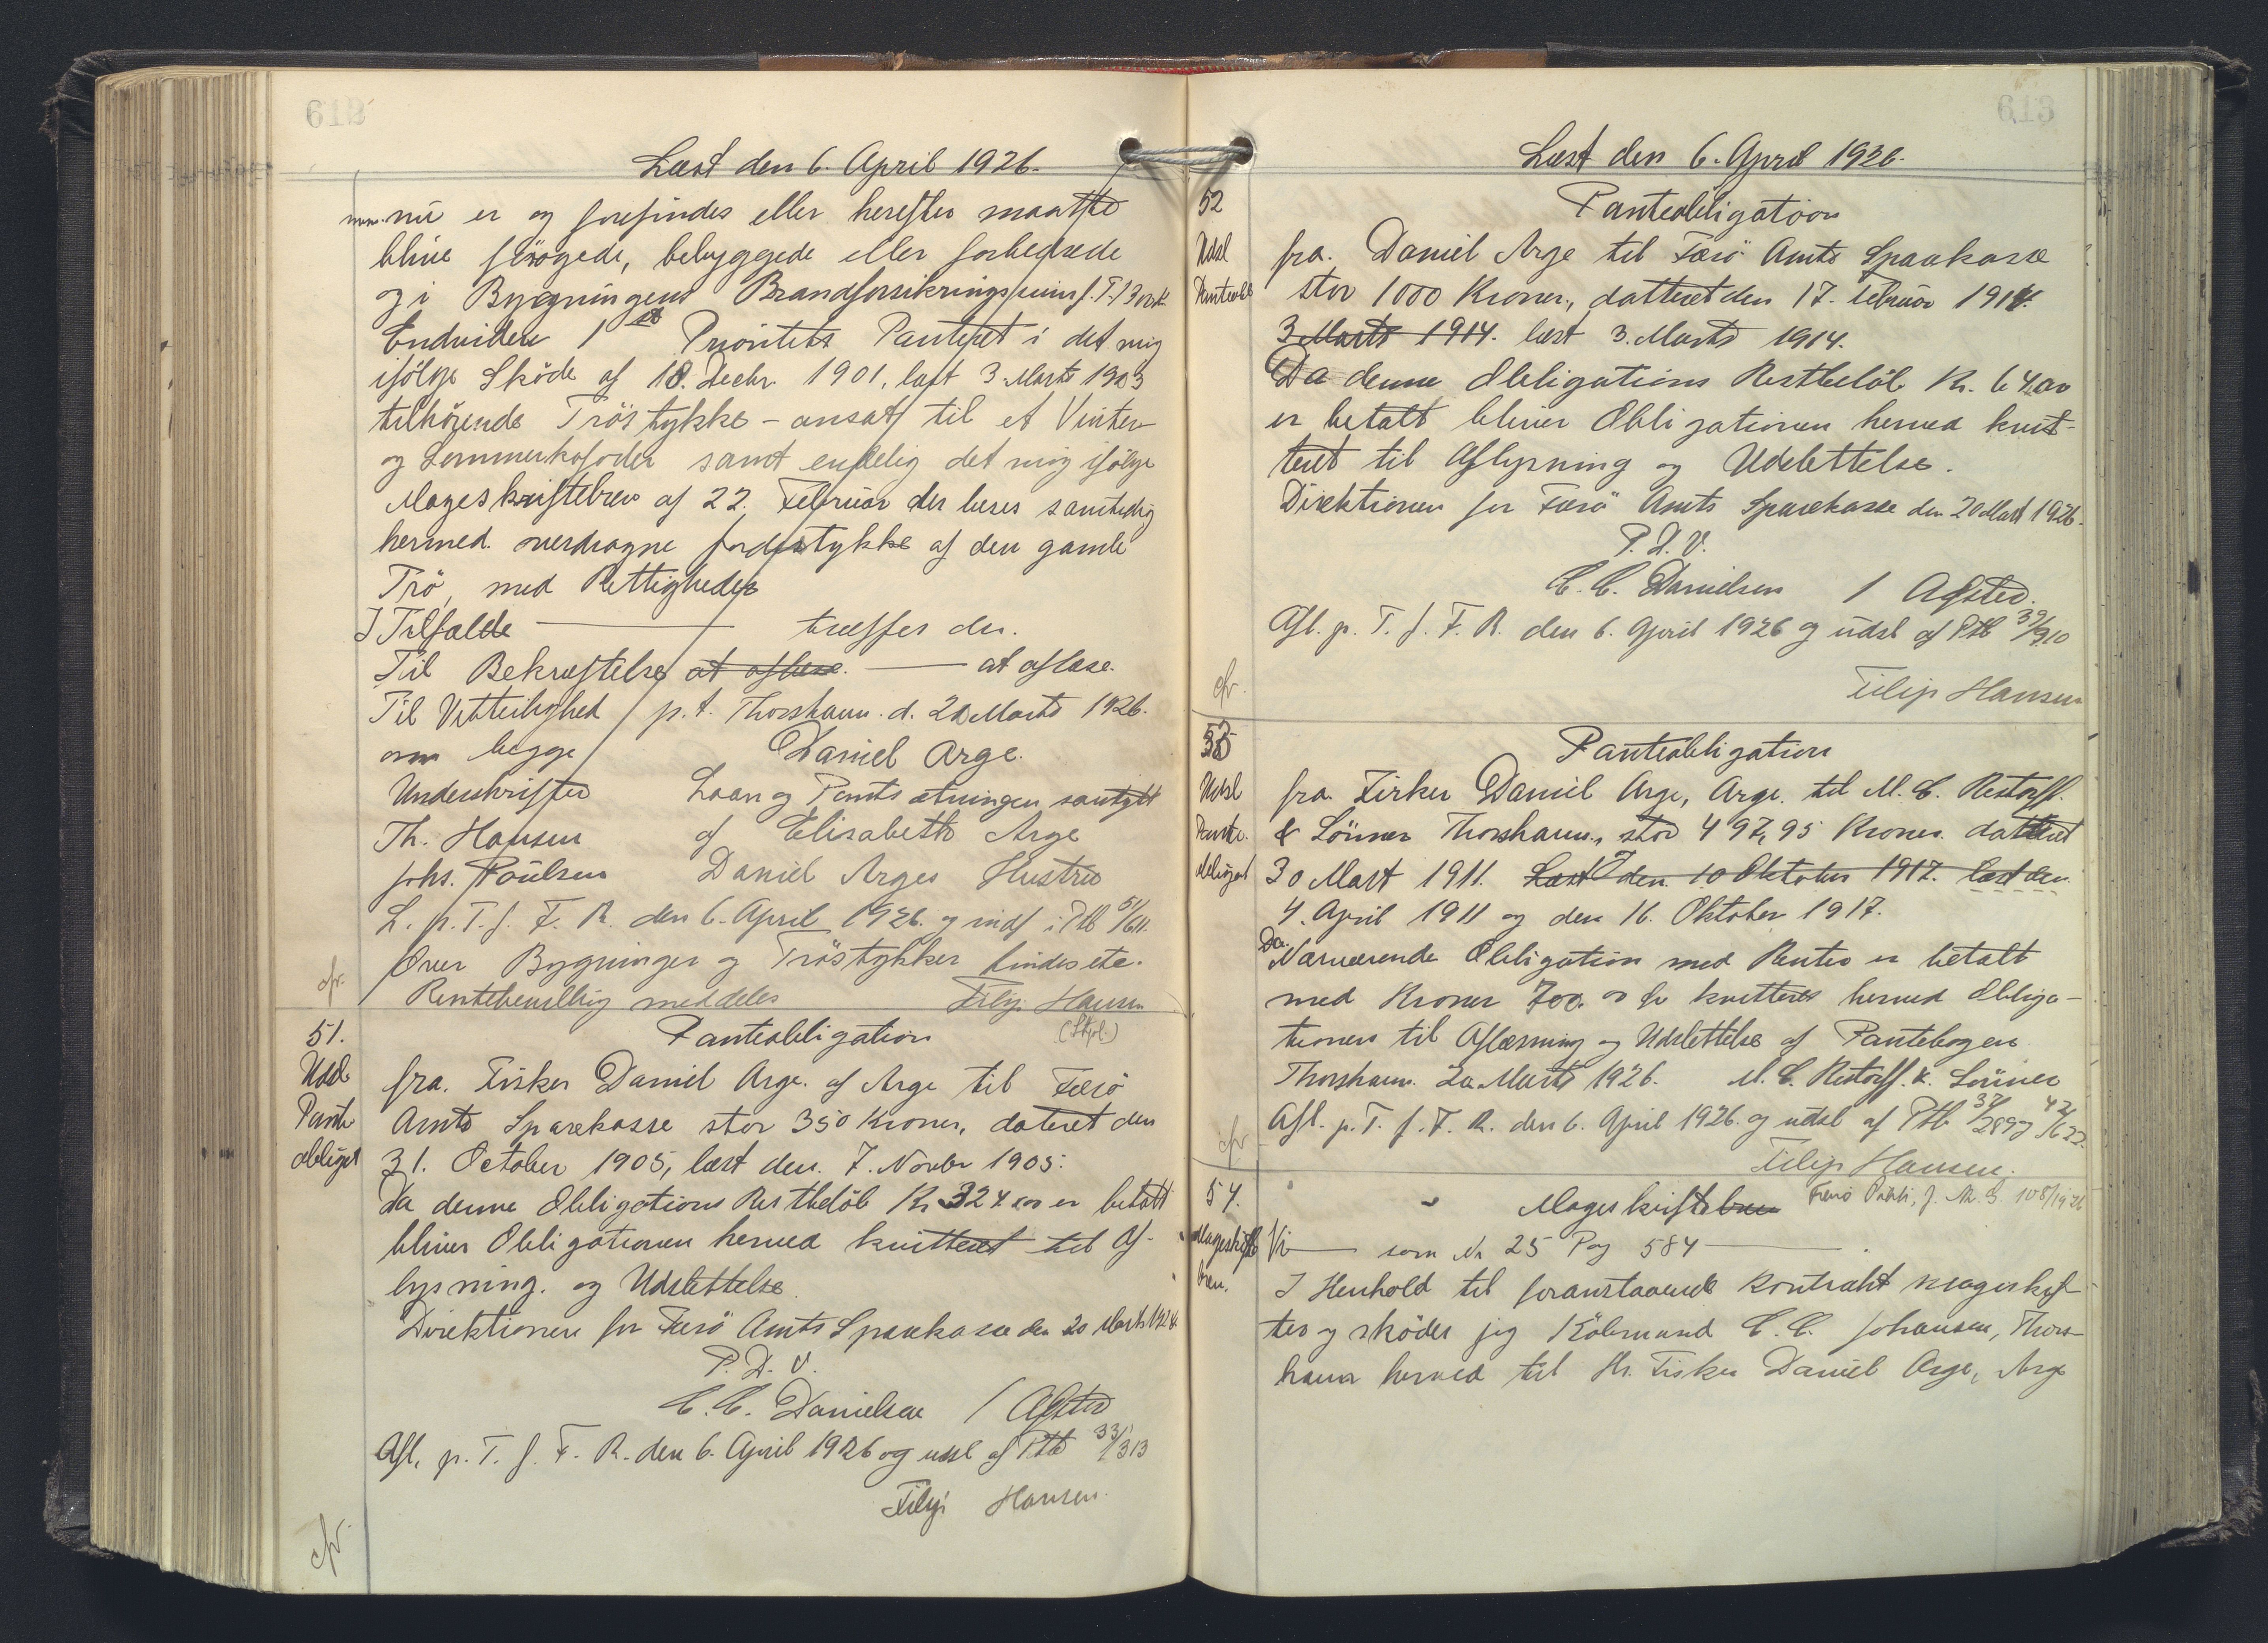 612
Læst den 6. April 1926.
nu er og forefindes eller herefter maatte
blive forøgede, bebyggede eller forbedrede
og i Bygningens Brandforsikringssum
Endvidere 1ste Prioritets Panteret i det mig
ifølge Sköde af 18. Decbr. 1901, læst 3 Marts 1903
tilhörende Tröstykke - ansat til et Vinter
og Sommerkofoder samt endelig det mig ifölge
Mageskriftebrev af 22. Februar der læses samtidig
hermed overdragne Jordstykke af den gamle
Trö, med Rettigheder
I Tilfælde — træffer den.
Til Bekræftelse at aflæse. — at aflæse.
Til Vitterlighed p.t. Thorshavn d. 20 Marts 1926.
om begge Daniel Arge.
Underskrifter Laan og Pantsætningen samtykt
Th. Hansen af Elisabeth Arge
Johs. Poulsen Daniel Arges Hustru
L. p. T. f. F. R. den 6. April 1926. og indf i Ptb 51/611.
Over Bygninger og Tröstykker findes ete.
Rentebevilling meddeles Filip Hansen
cfr. (Skpl.)
51. Panteobligation
Udsl. Pante obligat
fra. Fisker Daniel Arge. af Arge til Færö
Amts Sparekasse stor 350 Kroner, dateret den
31. October 1905, læst den. 7. Novbr 1905.
Da denne Obligations Restbelöb Kr 324 er betalt
bliver Obligationen herved kvitteret til Af-
lysning. og Udslettelse.
Direktionen for Færö Amts Sparekasse den 20 Marts 1926.
P. D. V.
C. C. Danielsen / Agsted
Afl. p. T. f. F. R. den 6. April 1926 og udsl af Ptb 33/313
Filip Hansen.
cfr.
613
Læst den 6. April 1926.
52 Panteobligation
Udsl Panteobl
fra. Daniel Arge til Færö Amts Sparekasse
stor 1000 Kroner, datteret den 17. Februar 1914.
3 Marts 1914. læst 3. Marts 1914.
Da denne Obligations Restbelöb Kr. 64,00
er betalt bliver Obligationen herved kvit-
teret til Aflysning og Udslettelse.
Direktionen for Færö Amts Sparekasse den 20 Mart 1926.
P. D. V.
C. C. Danielsen / Agsted.
Afl. p. T. f. F. R. den 6. April 1926 og udsl af Ptb 39/910
cfr. Filip Hansen
53 Panteobligation
Udsl Pante- obligat
fra Fisker Daniel Arge, Arge. til M. C. Restorff.
& Sönner Thorshavn, stor 497,95 Kroner. datteret
30 Mart 1911. Læst den. 10 Oktober 1917. læst den
4. April 1911 og den 16. Oktober 1917.
Da Nærværende Obligation med Renter er betalt
med Kroner 700. kvitteres herved Obliga-
tionen til Aflæsning og Udslettelse af Pantebogen
Thorshavn. 20 Marts 1926. M. C. Restorff. & Sönner
Afl. p. T. f. F. R. den 6. April 1926. og udsl af Ptb 37/289 og 42/622
cfr Filip Hansen.
54. Mageskriftebrev
Mageskifte brev.
Vi — som Nr 25 Pag 584 —
I Henhold til foranstaaende Kontrakt mageskif-
ter og sköder jeg Köbmand C. C. Johansen, Thors-
havn herved til Hr. Fisker Daniel Arge, Arge